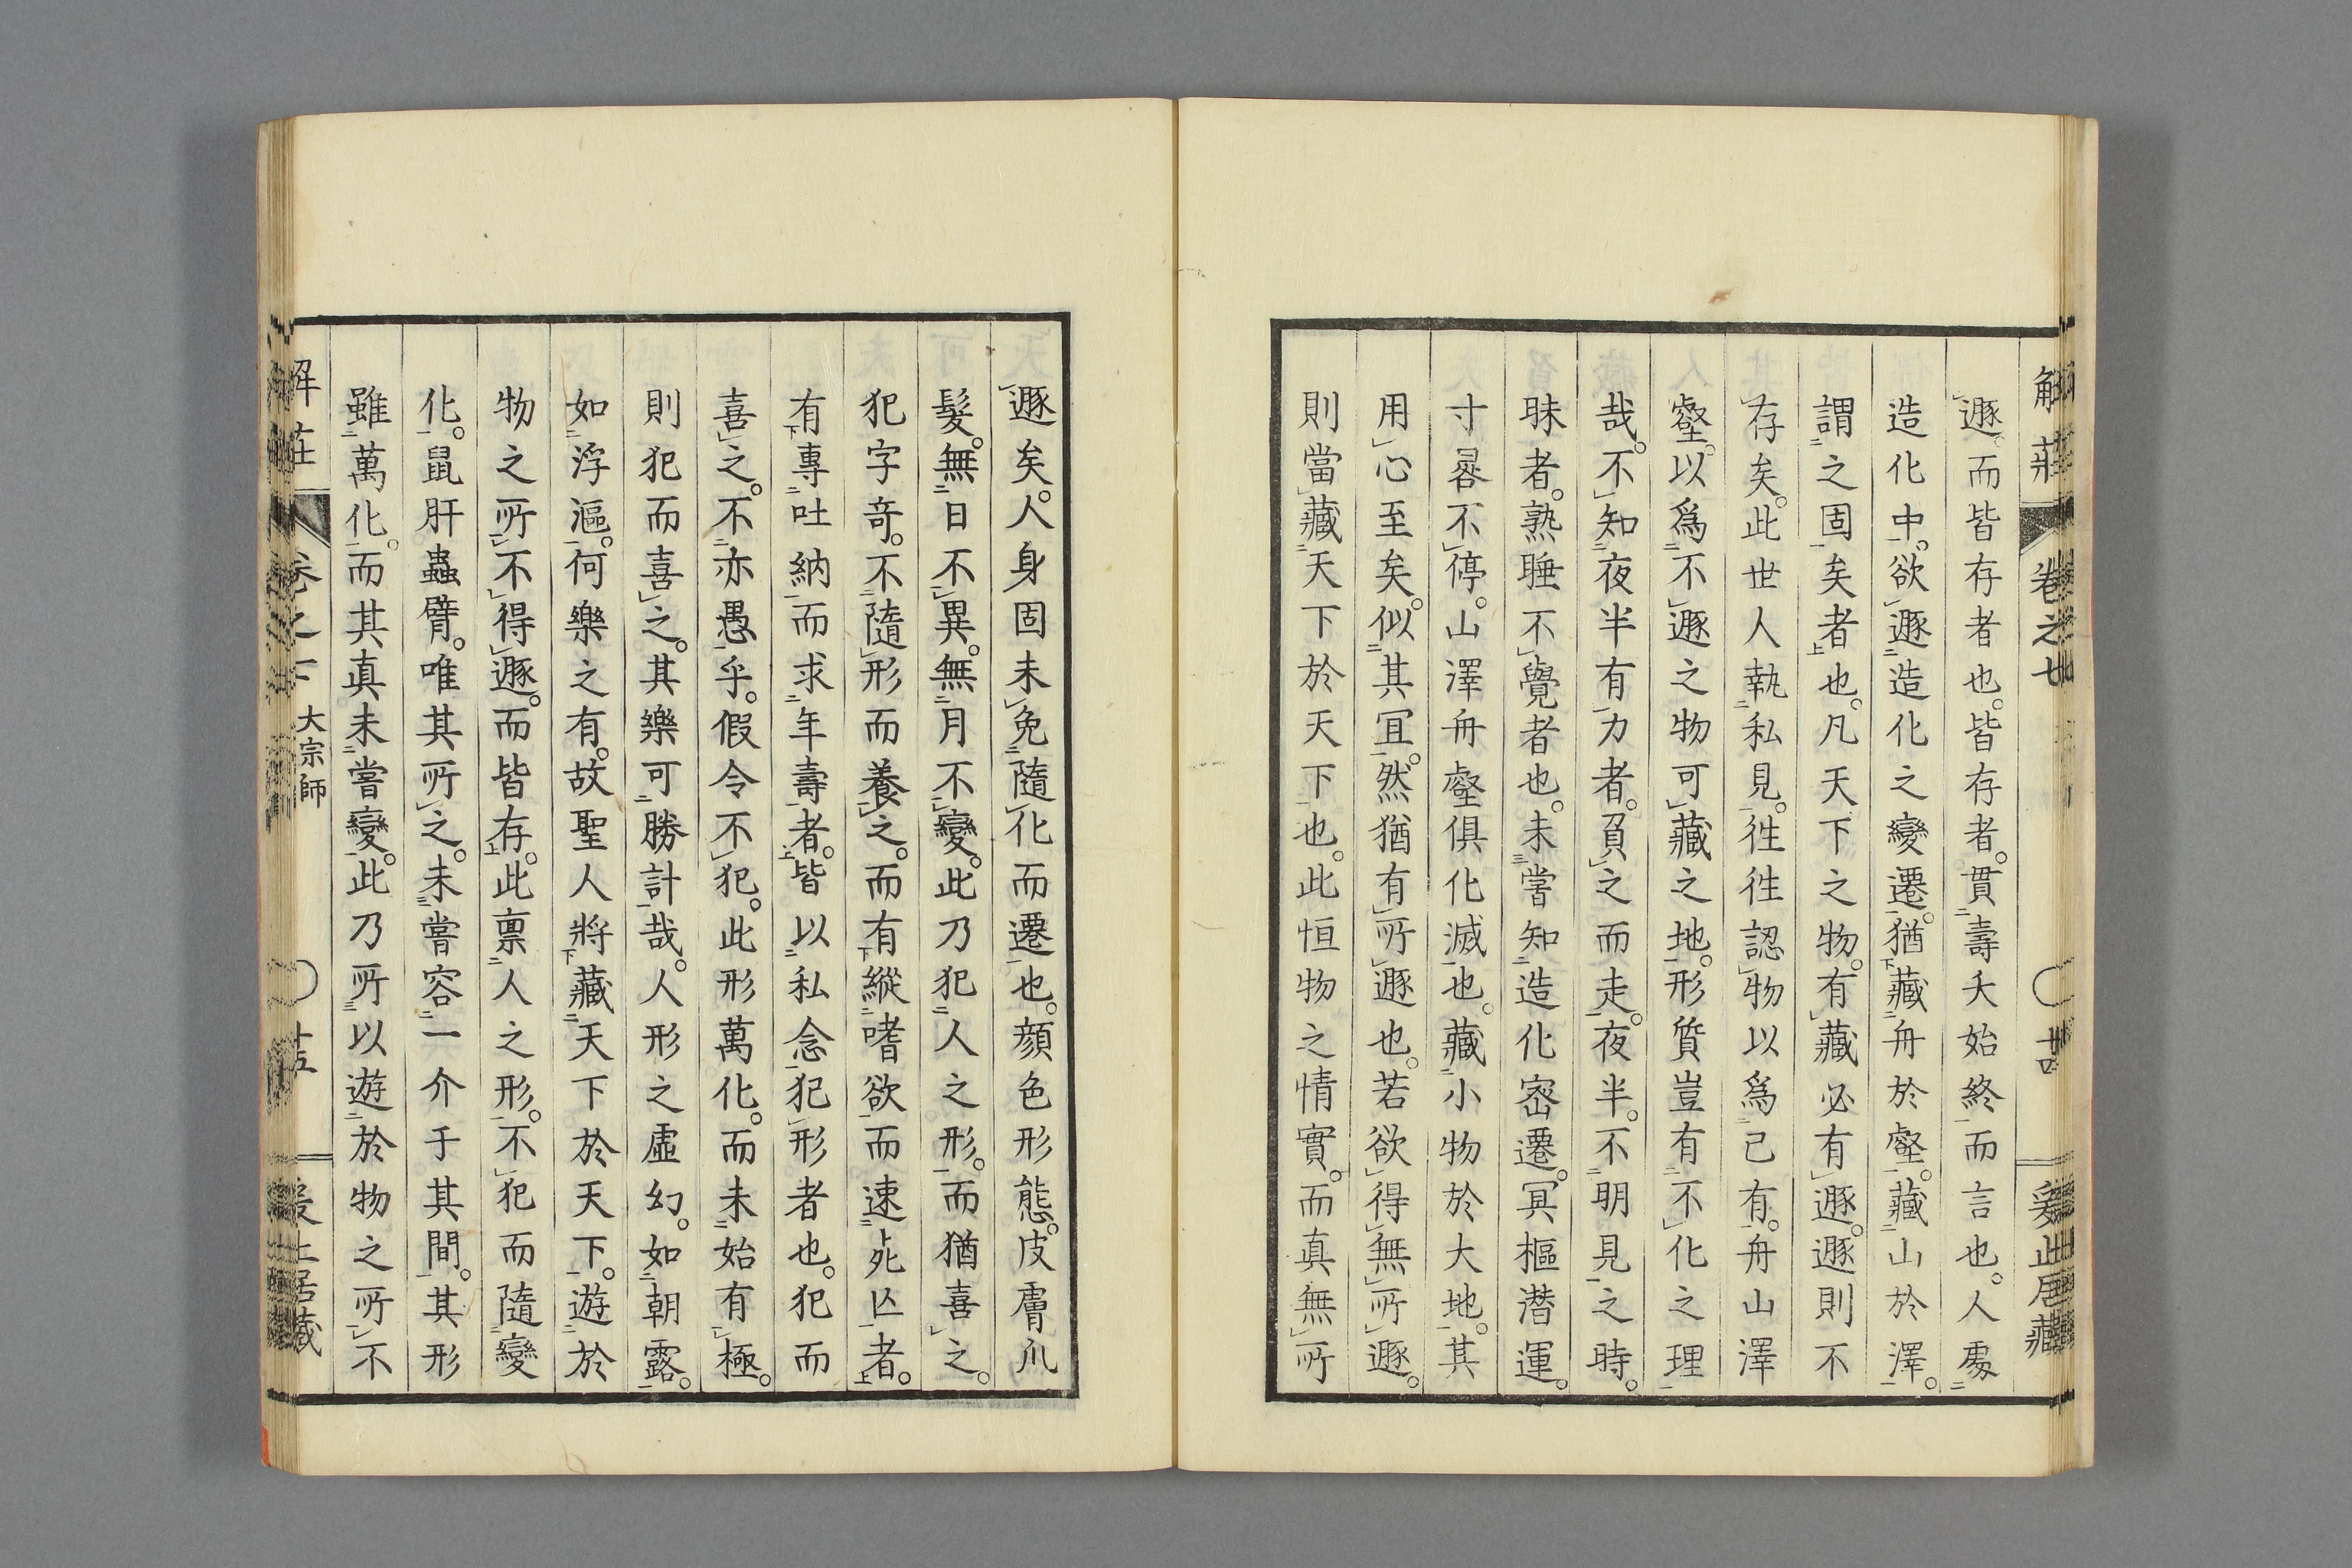 解莊
卷之七
廿四
爰止居藏
遯。而皆存者也。皆存者。貫壽夭始終而言也。人處
造化中。欲遯造化之變遷。猶藏舟於壑。藏山於澤。
謂之固矣者也。凡天下之物。有藏必有遯。遯則不
存矣。此世人執私見。徃徃認物以爲己有。舟山澤
壑。以爲不遯之物可藏之地。形質豈有不化之理
哉。不知夜半有力者。負之而走。夜半。不明見之時。
昧者。熟睡不覺者也。未嘗知造化密遷。冥樞潛運。
寸晷不停。山澤舟壑俱化滅也。藏小物於大地。其
用心至矣。似其冝。然猶有所遯也。若欲得無所遯。
則當藏天下於天下也。此恒物之情實。而真無所
遯矣。人身固未免隨化而遷也。顔色形態。皮膚爪
髮。無日不異。無月不變。此乃犯人之形。而猶喜之。
犯字奇。不隨形而養之。而有縱嗜欲而速死亾者。
有專吐納而求年壽者。皆以私念犯形者也。犯而
喜之。不亦愚乎。假令不犯。此形萬化。而未始有極。
則犯而喜之。其樂可勝計哉。人形之虛幻。如朝露。
如浮漚。何樂之有。故聖人將藏天下於天下。遊於
物之所不得遯。而皆存。此禀人之形。不犯而隨變
化。鼠肝蟲臂。唯其所之。未嘗容一介于其間。其形
雖萬化。而其真未嘗變。此乃所以遊於物之所不
解莊
卷之
大宗師
十五
爰止居藏